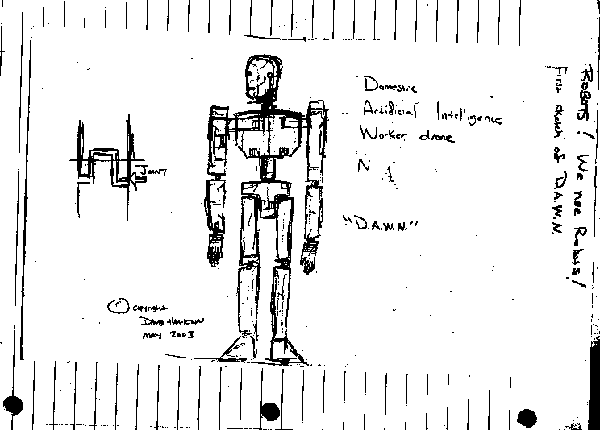 Domestic
Artificial Intelligence
Worker drone
N A
"D.A.W.N."
JOINT
© COPYRIGHT
MAY 2003
ROBOTS! We need Robots!
First sketch of D.A.W.N.